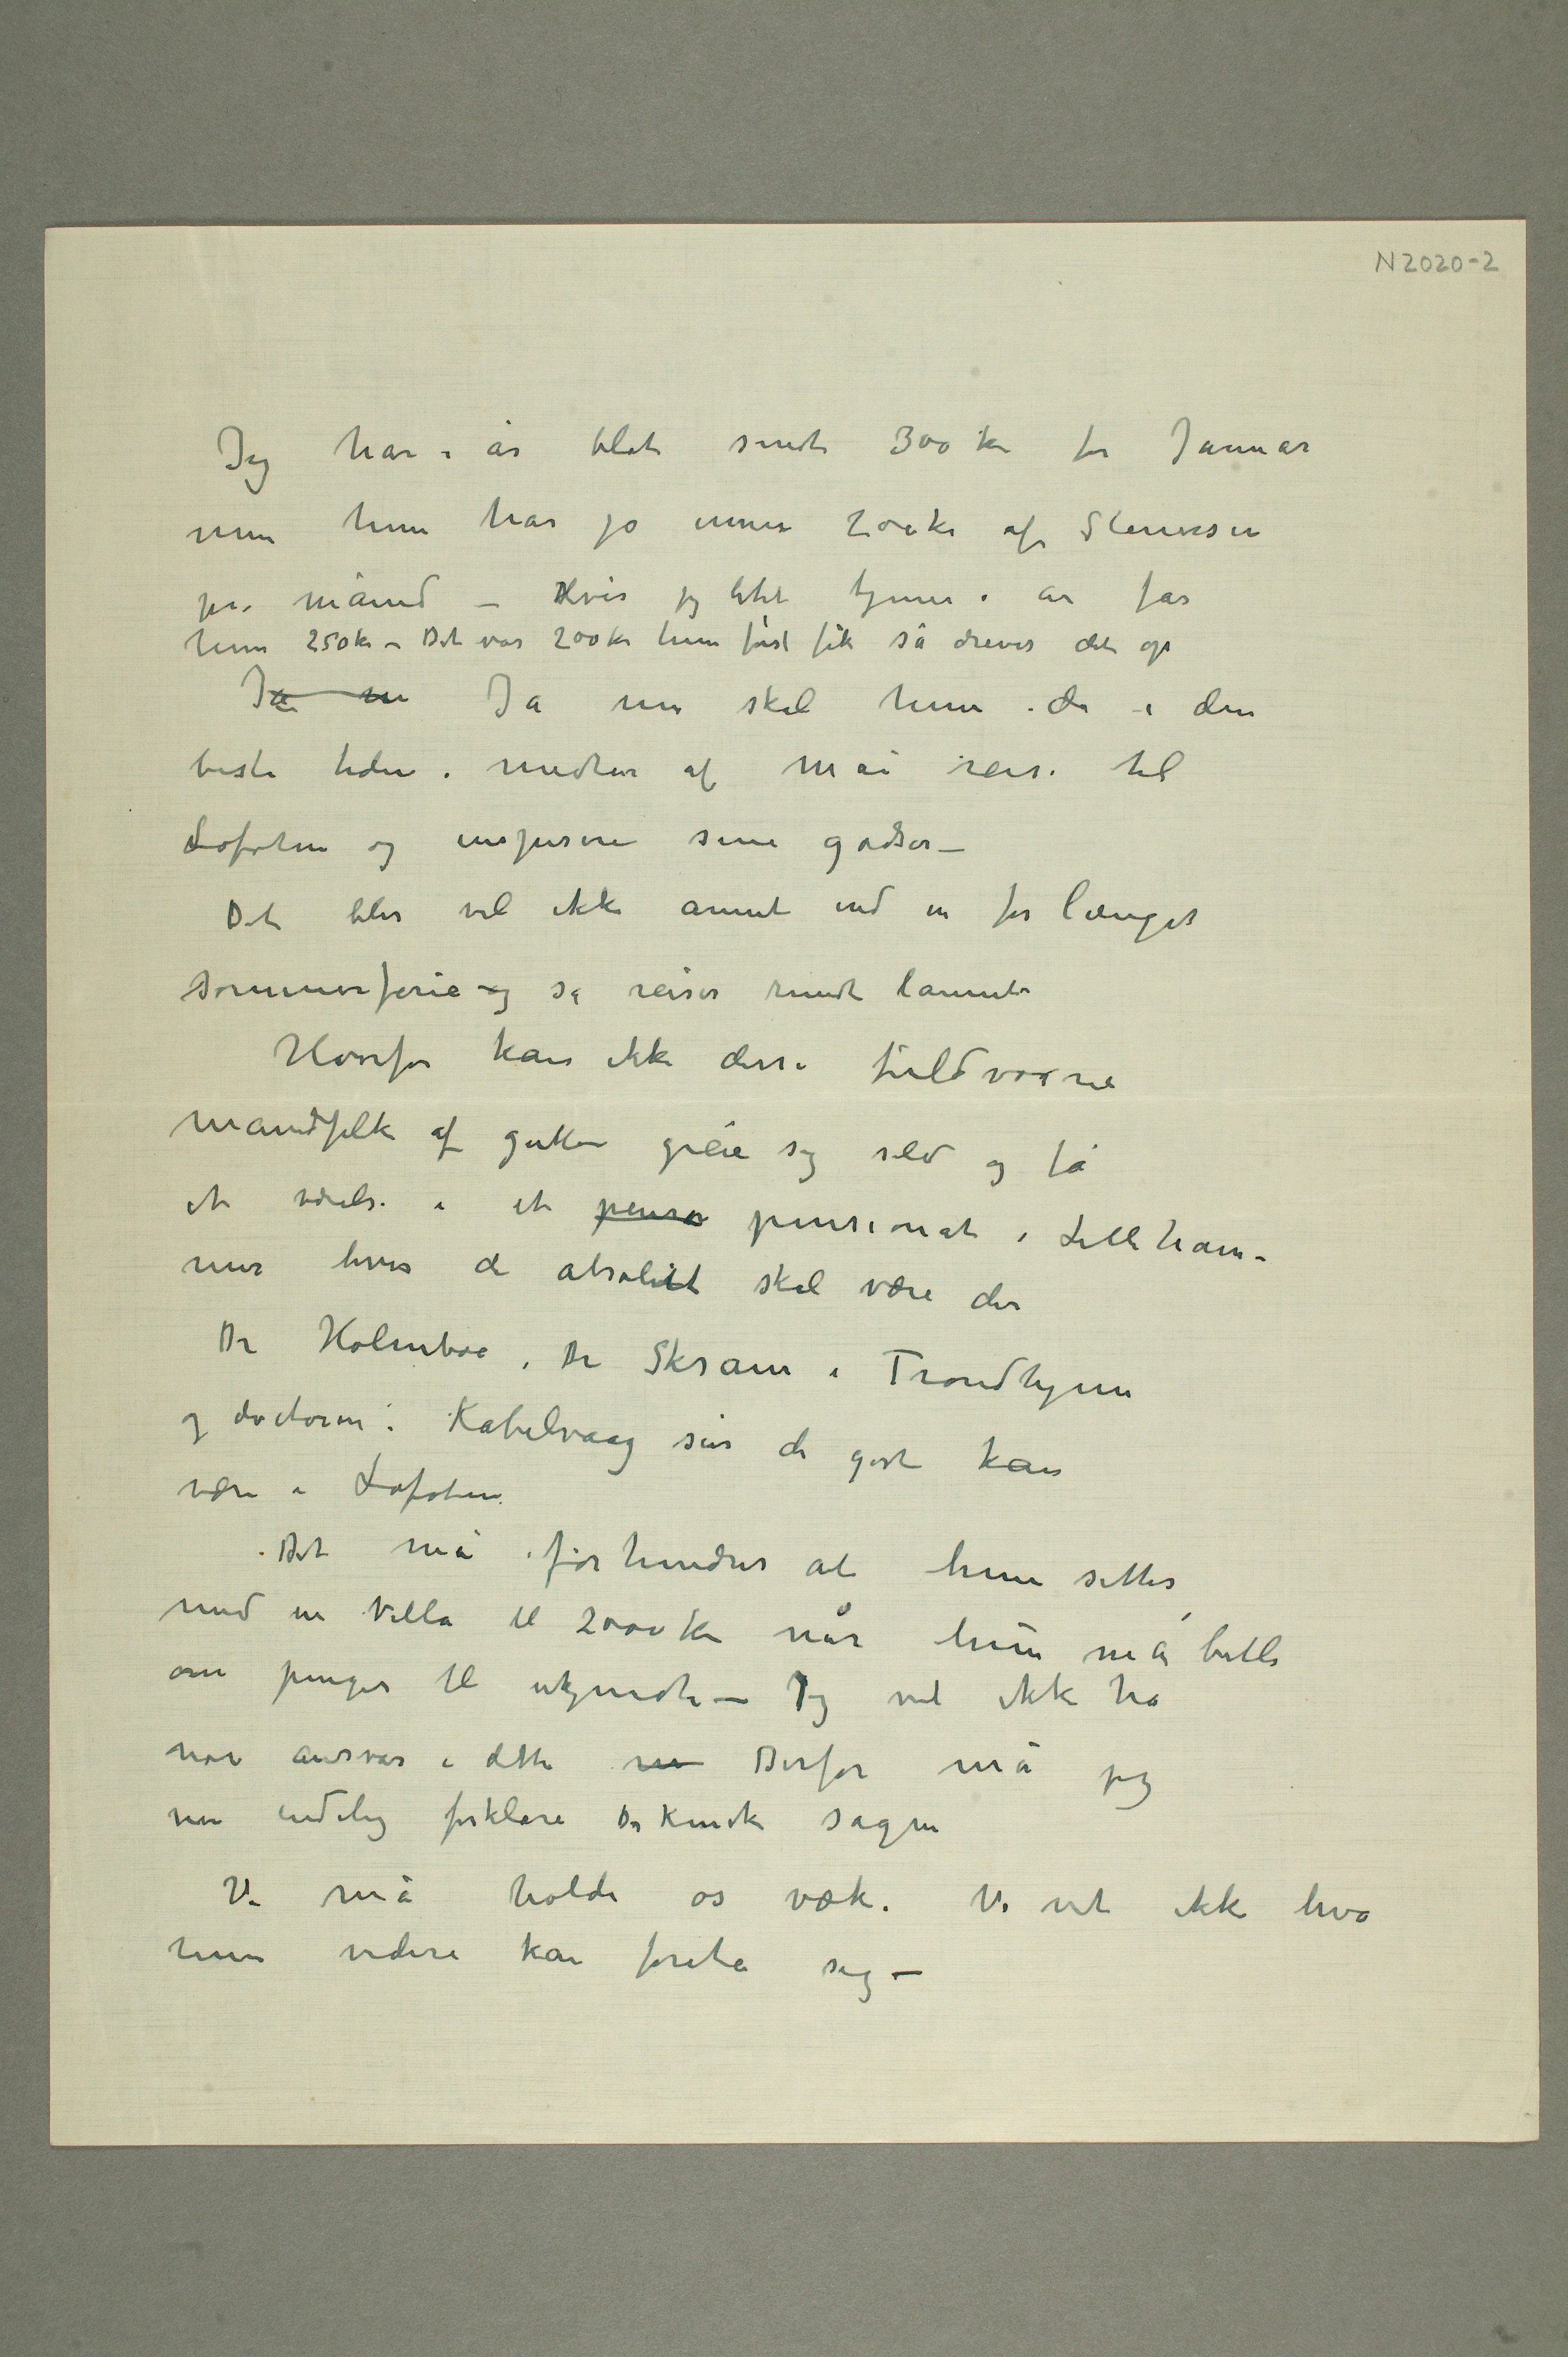 N2020-2
Jeg har i år blot sendt 300 kr for Januar
men hun har jo ennu 200kr af Stenersen
pr. måned – Hvis jeg litet tjener i år får
hun 250kr – Det var 200kr hun først fik så drives det op
Ja nu Ja nu skal hun da i den
beste tiden i midten af mai reise til
Lofoten og inspisere sine godser –
Det blir vel ikke annet end en forlænget
sommerferie og så reiser rundt lannet
Hvorfor kan ikke disse fuldvoxne
mandfolk af gutter greie sig selv og få
et værelse i et pensio pensionat i Lilleham-
mer hvis de absolutt skal være der
Dr Holmboe, Dr Skram i Trondhjem
og doctoren i Kabelvaag sier de godt kan
være i Lofoten.
Det må forhindres at hun sittes
med en Villa til 2000kr når hun må betle
om penger til ukjendte – Jeg vil ikke ha
noe ansvar i dette Derfor må jeg
nu endelig forklare Dr Kinck sagen
Vi må holde os væk. Vi vet ikke hva
hun videre kan foreta sig –